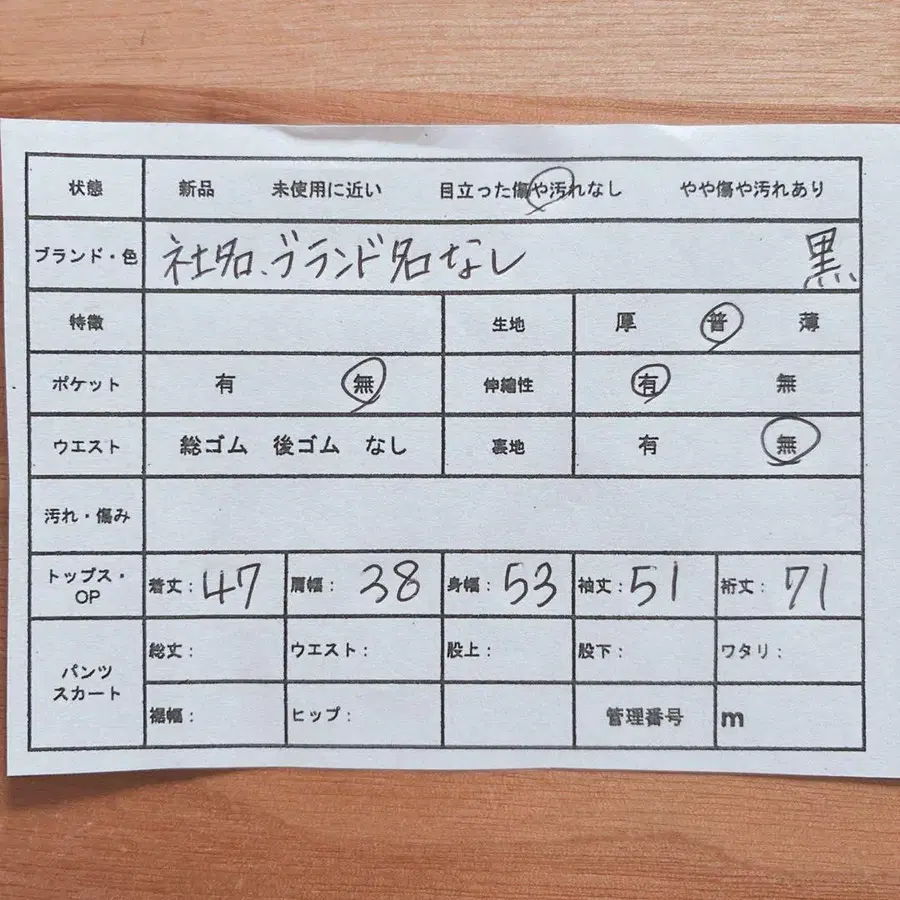 状態 新品 未使用に近い 目立った傷や汚れなし やや傷や汚れあり
ブランド・色 社名、ブランド名なし 黒
特徴 生地 厚 普 薄
ポケット 有 無 伸縮性 有 無
ウエスト 総ゴム 後ゴム なし 裏地 有 無
汚れ・傷み
トップス・OP 着丈：47 肩幅：38 身幅：53 袖丈：51 裄丈：71
パンツ スカート 総丈： ウエスト： 股上： 股下： ワタリ：
裾幅： ヒップ： 管理番号 m